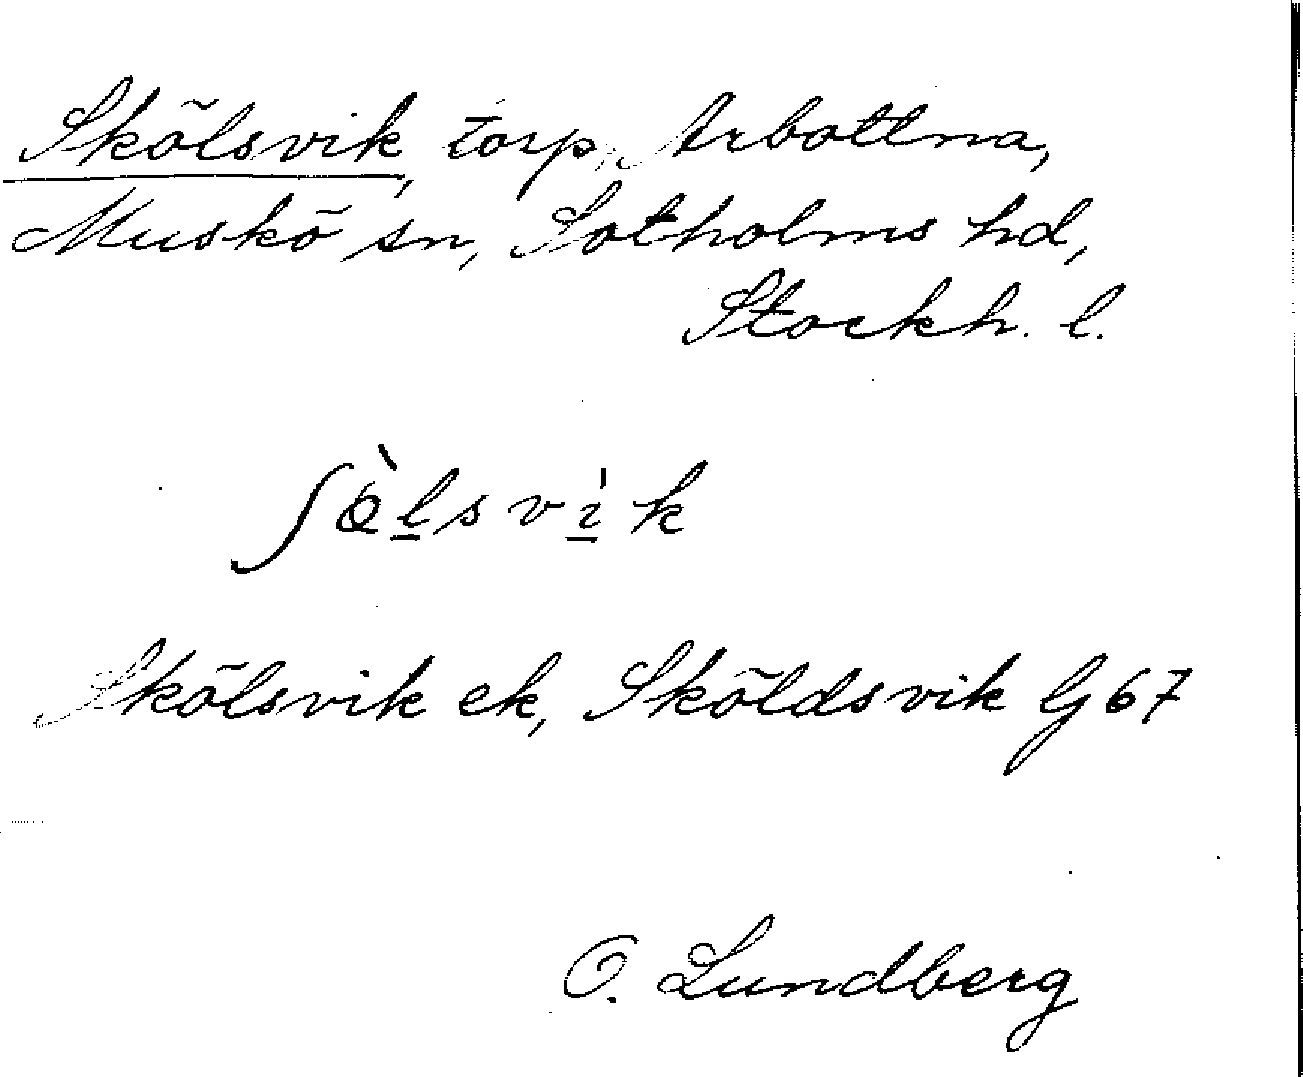 Skölsvik, torp, Arbottna,
Muskö sn, Sotholms hd,
Stockh. l.
ʃö̀lsvik
Skölsvik ek, Sköldsvik G 67
O. Lundberg